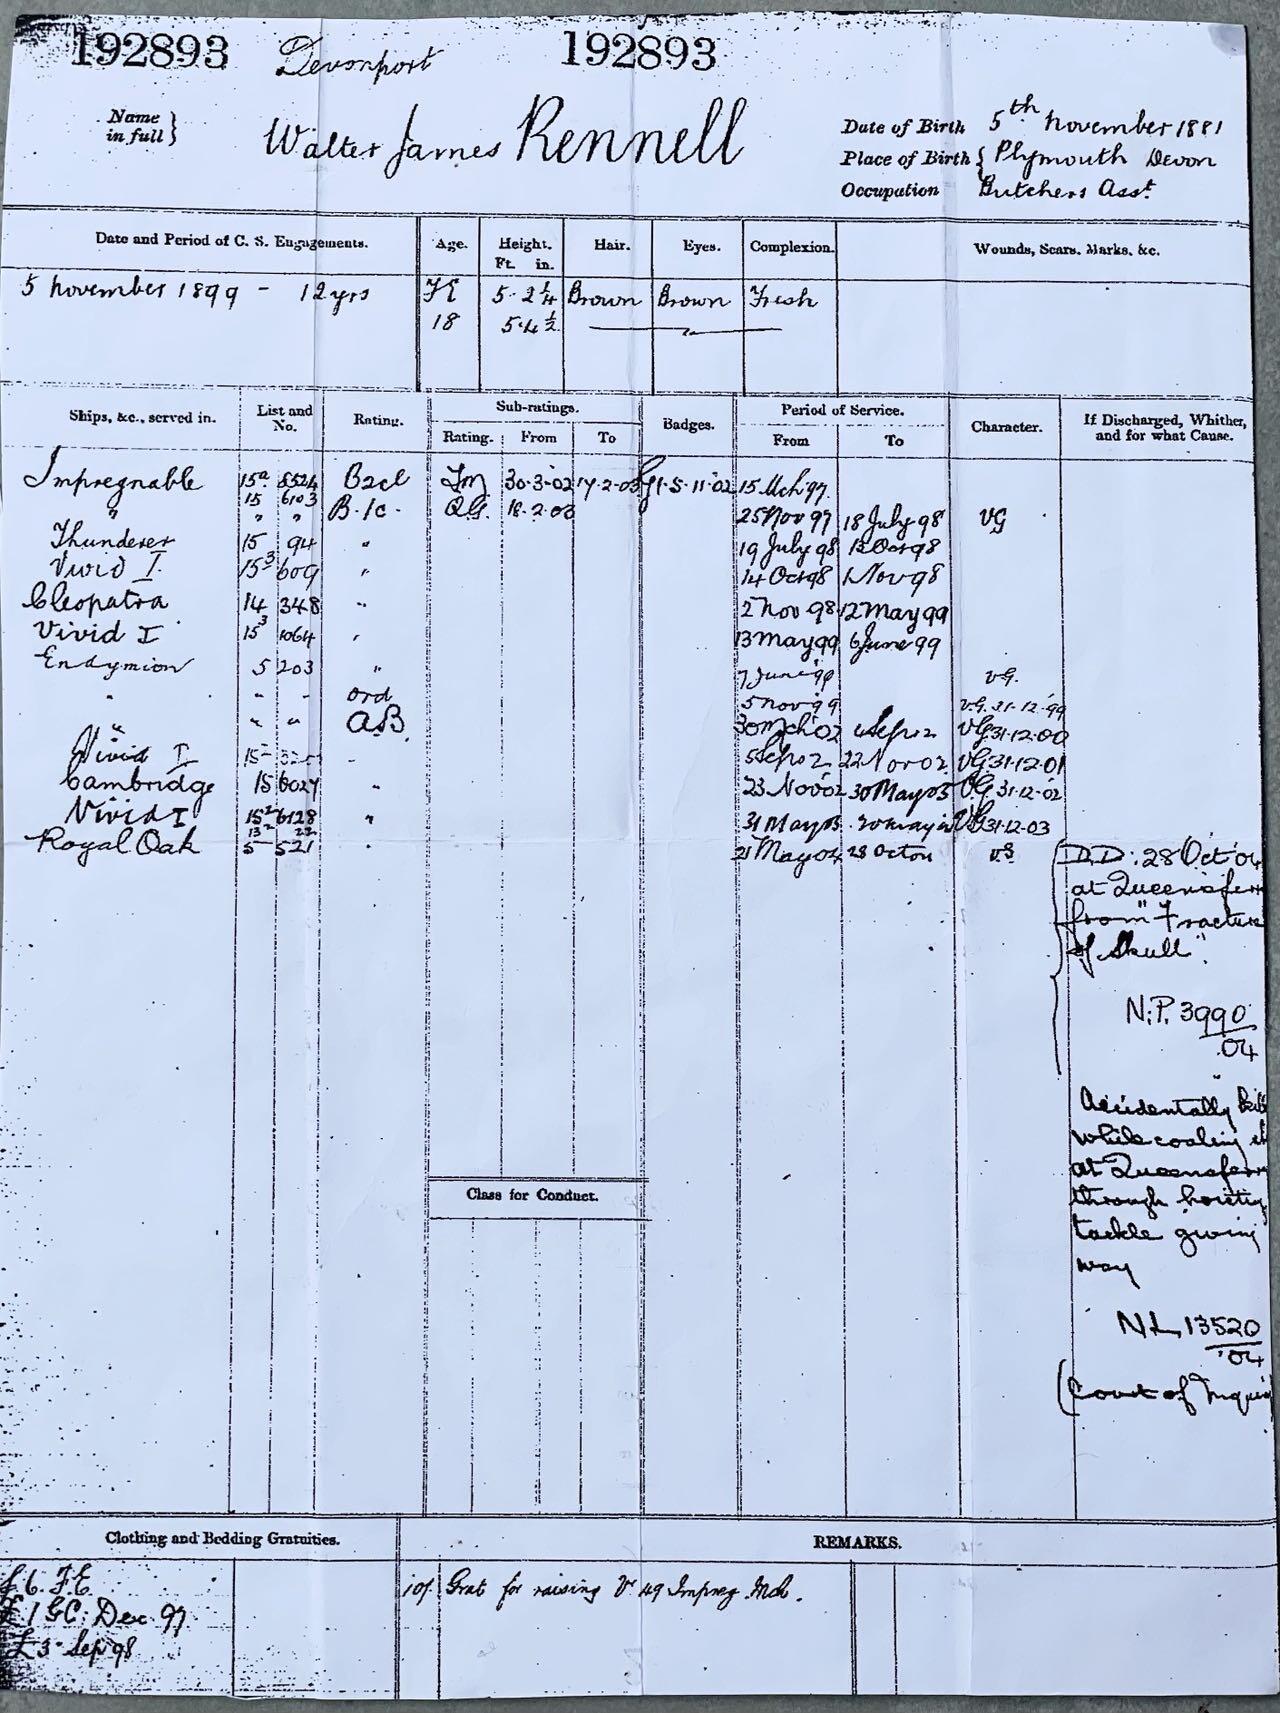 192893 Devonport 192893
Name in full } Walter James Rennell
Date of Birth 5th November 1881
Place of Birth { Plymouth Devon
Occupation Butchers Asst.
Date and Period of C. S. Engagements. Age. Height. Ft. in. Hair. Eyes. Complexion. Wounds, Scars, Marks, &c.
5 November 1899 - 12 yrs FE 5·2¼ Brown Brown Fresh
18 5·4½
Ships, &c., served in. List and No. Rating. Sub-ratings. Badges. Period of Service. Character. If Discharged, Whither, and for what Cause.
Rating. From To From To
Impregnable 15a 8524 B2cl TM 30·3·02 17·2·03 G1·5·11·02 15 Mch 97
15 6103
" " " B.1c. QG. 18·2·03 25 Nov 97 18 July 98 VG
Thunderer 15 94 " 19 July 98 13 Oct 98
Vivid I 15³ 609 " 14 Oct 98 1 Nov 98
Cleopatra 14 348 " 2 Nov 98 12 May 99
Vivid I 15³ 1064 " 13 May 99 6 June 99
Endymion 5 203 " 7 June 99 VG.
" " " Ord 5 Nov 99 VG. 31·12·99
" " " AB. 30 Mch 02 4 Sep 02 VG 31·12·00
Vivid I 15 " 5 Sep 02 22 Nov 02 VG 31·12·01
Cambridge 15 6027 " 23 Nov 02 30 May 03 VG 31·12·02
Vivid I 15² 6128 " 31 May 03 20 May 04 VG 31·12·03
Royal Oak 5 521 " 21 May 04 28 Oct 04 VG
D.D: 28 Oct '04
at Queensferry
from "Fracture
of Skull".
N.P. 3990
/04
Accidentally
while coaling
at Queensferry
through hoisting
tackle giving
way
N.L 13520
/'04
(Court of Inquiry
Class for Conduct.
Clothing and Bedding Gratuities. REMARKS.
£6. FE 10/. Grat for raising V 49 Impreg. Mch.
£1 GC: Dec 97
£3 Sep 98